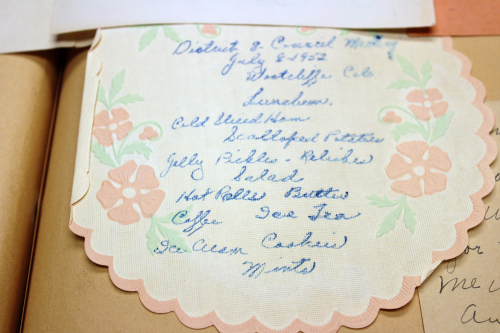 District 8 Council Meeting
July 8-1952
Westcliffe Colo
Luncheon.
Cold Sliced Ham
Scalloped Potatoes
Jelly Pickles - Relishes
Salad
Hot Rolls Butter
Coffee Ice Tea
Ice Cream Cookies
Mints
for
me